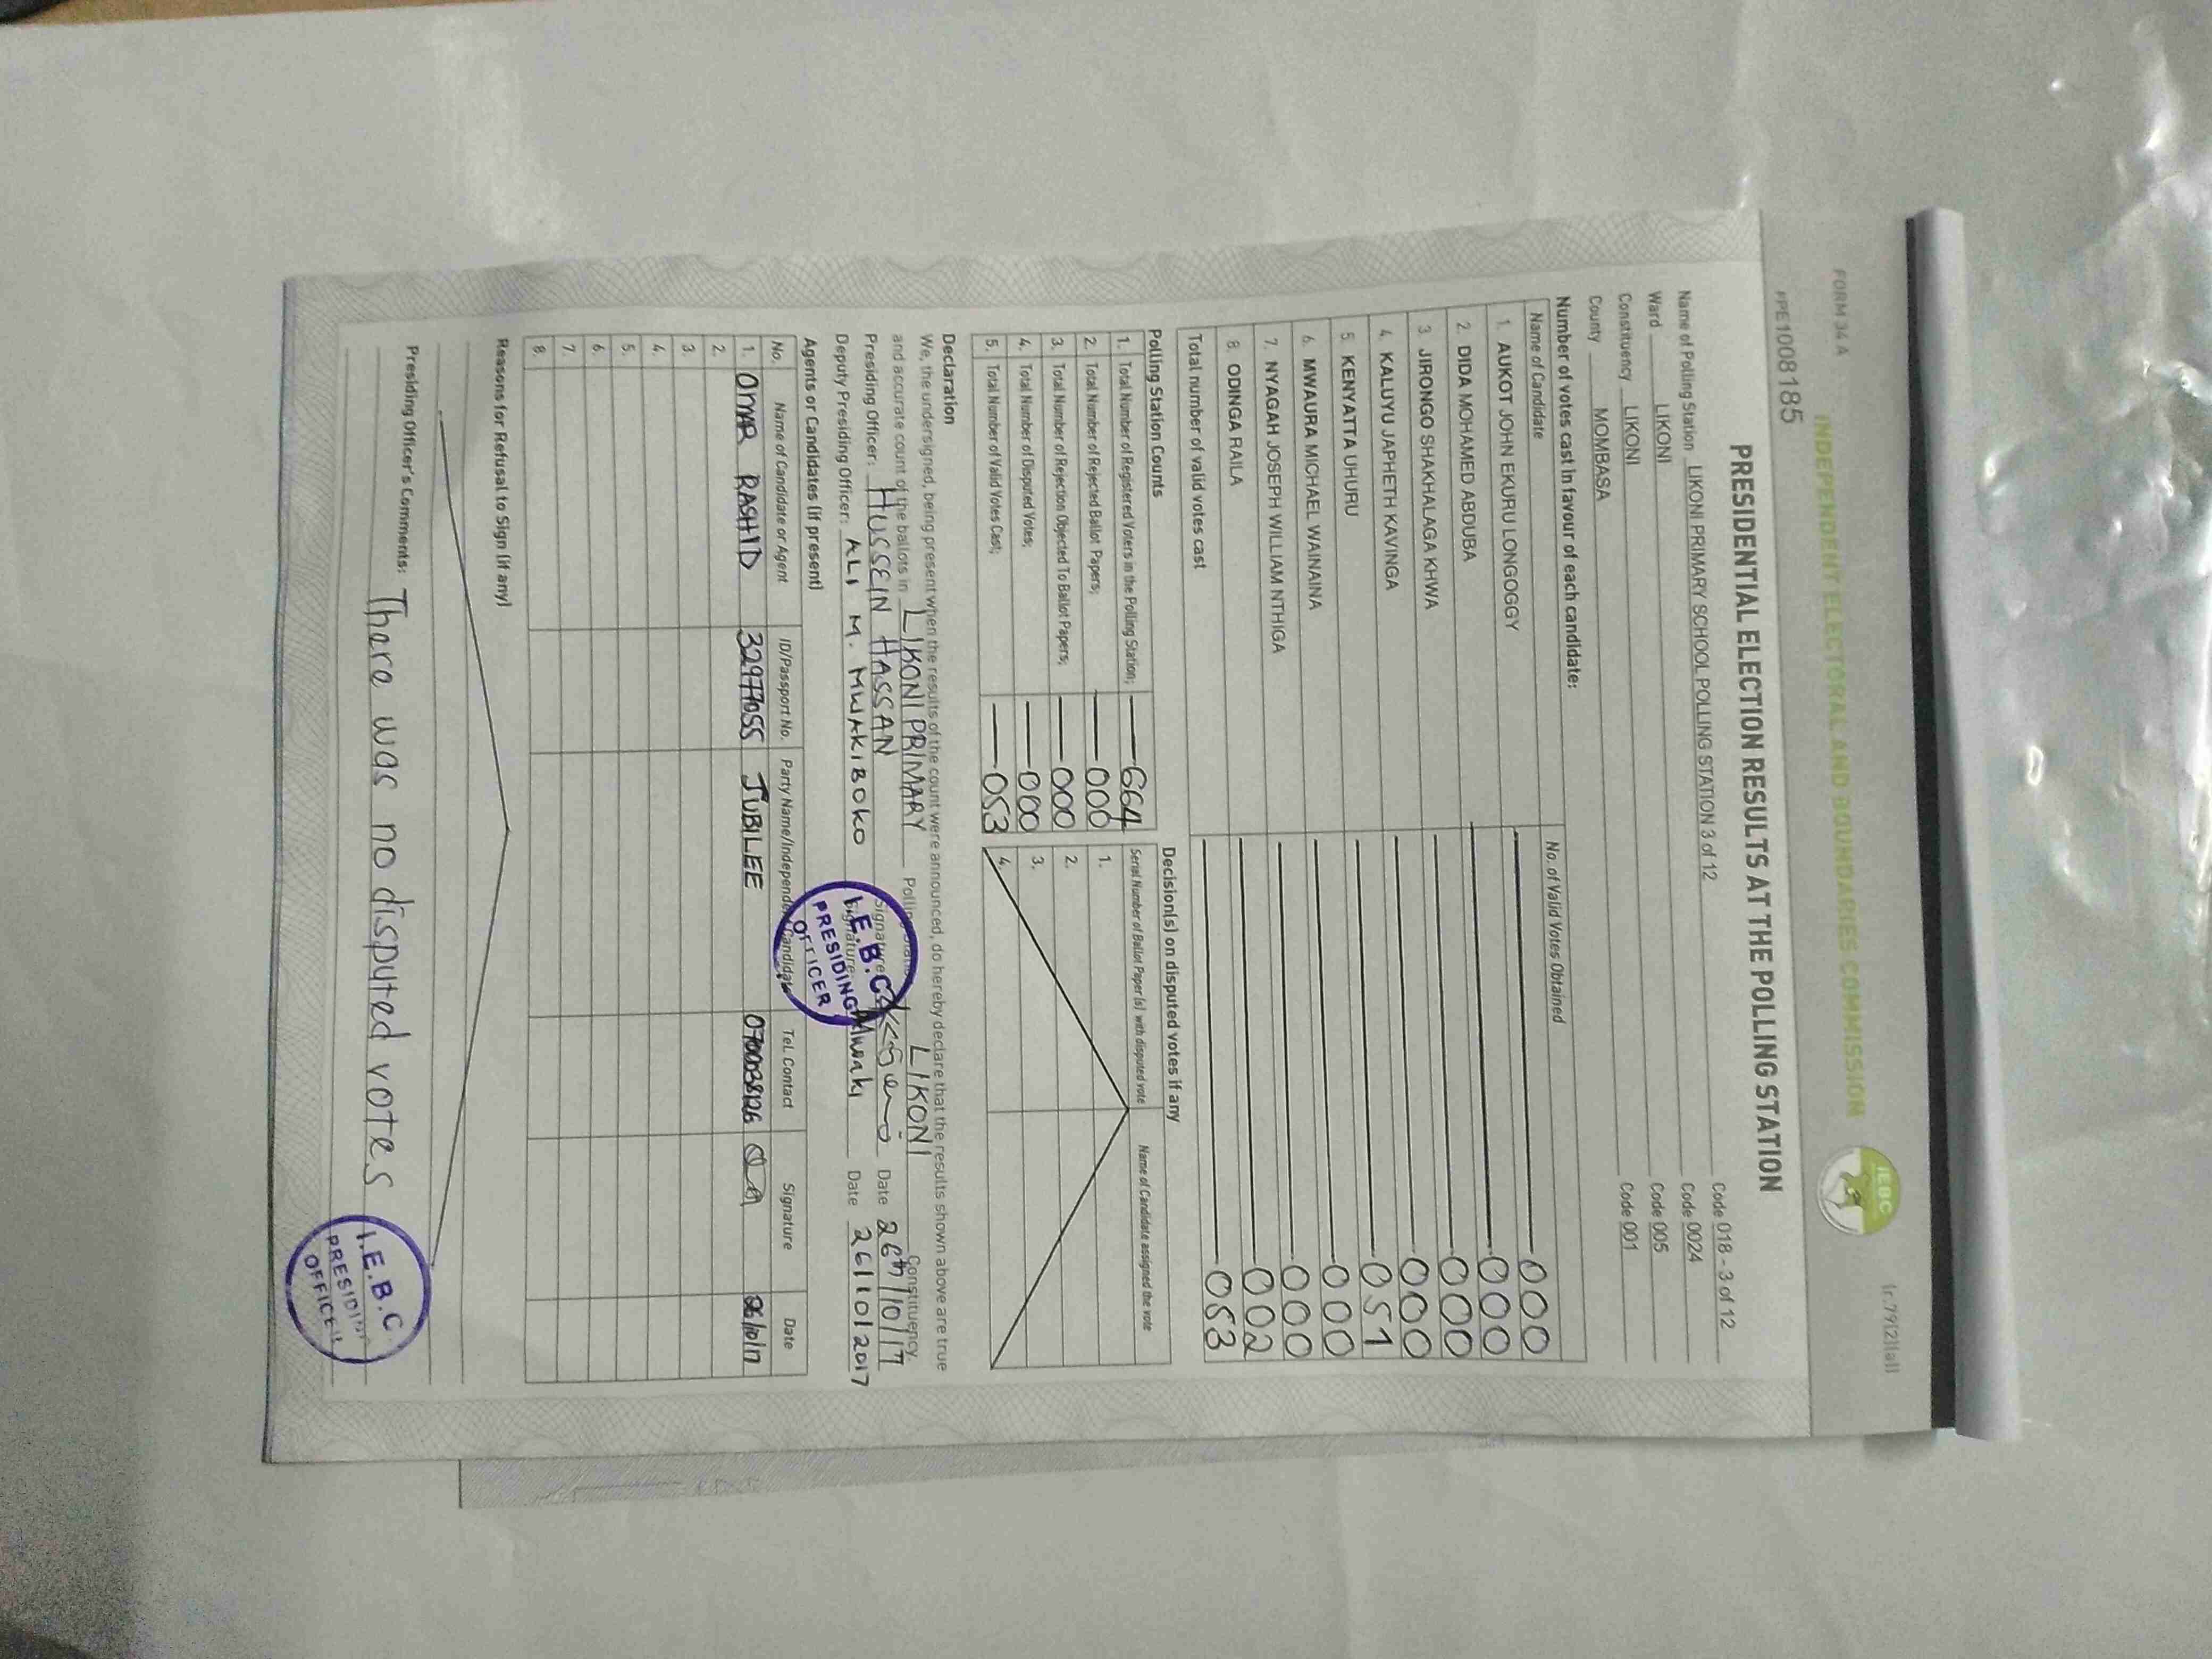 FORM 34 A
(r.79(2)(a))
INDEPENDENT ELECTORAL AND BOUNDARIES COMMISSION
IEBC
PPE1008185
PRESIDENTIAL ELECTION RESULTS AT THE POLLING STATION
Name of Polling Station LIKONI PRIMARY SCHOOL POLLING STATION 3 of 12 Code 018 - 3 of 12
Ward LIKONI Code 0024
Constituency LIKONI Code 005
County MOMBASA Code 001
Number of votes cast in favour of each candidate:
Name of Candidate No. of Valid Votes Obtained
1. AUKOT JOHN EKURU LONGOGGY 000
2. DIDA MOHAMED ABDUBA 000
3. JIRONGO SHAKHALAGA KHWA 000
4. KALUYU JAPHETH KAVINGA 000
5. KENYATTA UHURU 051
6. MWAURA MICHAEL WAINAINA 000
7. NYAGAH JOSEPH WILLIAM NTHIGA 000
8. ODINGA RAILA 002
Total number of valid votes cast 053
Polling Station Counts
1. Total Number of Registered Voters in the Polling Station; 664
2. Total Number of Rejected Ballot Papers; 000
3. Total Number of Rejection Objected To Ballot Papers; 000
4. Total Number of Disputed Votes; 000
5. Total Number of Valid Votes Cast; 053
Decision(s) on disputed votes if any
Serial Number of Ballot Paper (s) with disputed vote Name of Candidate assigned the vote
1.
2.
3.
4.
Declaration
We, the undersigned, being present when the results of the count were announced, do hereby declare that the results shown above are true
and accurate count of the ballots in LIKONI PRIMARY Polling Station LIKONI Constituency.
Presiding Officer: HUSSEIN HASSAN Signature Date 26th/10/17
Deputy Presiding Officer: ALI M. MWAKIBOKO Signature Mwaki Date 26/10/2017
I.E.B.C
PRESIDING
OFFICER
Agents or Candidates (if present)
No. Name of Candidate or Agent ID/Passport No. Party Name/Independent Candidate Tel. Contact Signature Date
1. OMAR RASHID 32977055 JUBILEE 26/10/17
2.
3.
4.
5.
6.
7.
8.
Reasons for Refusal to Sign (if any)
Presiding Officer's Comments: There was no disputed votes
I.E.B.C
PRESIDING
OFFICER